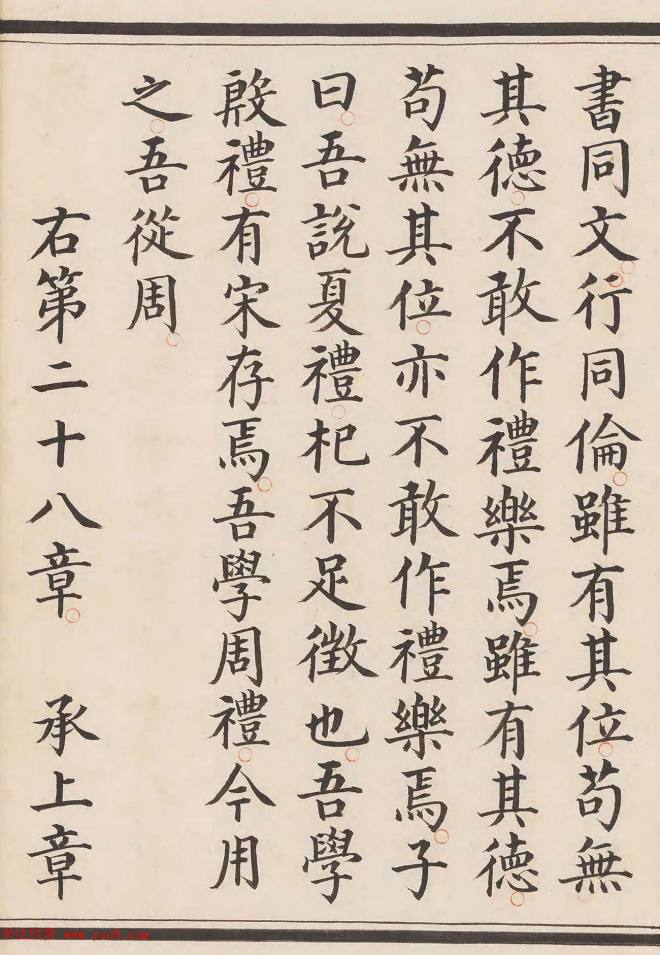 書同文行同倫雖有其位苟無
其德不敢作禮樂焉雖有其德
苟無其位亦不敢作禮樂焉子
曰吾說夏禮杞不足徵也吾學
殷禮有宋存焉吾學周禮今用
之吾從周
右第二十八章 承上章